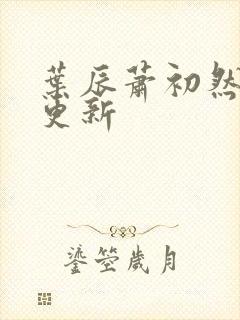 葉辰蕭初然
更新
鎏瑩歲月